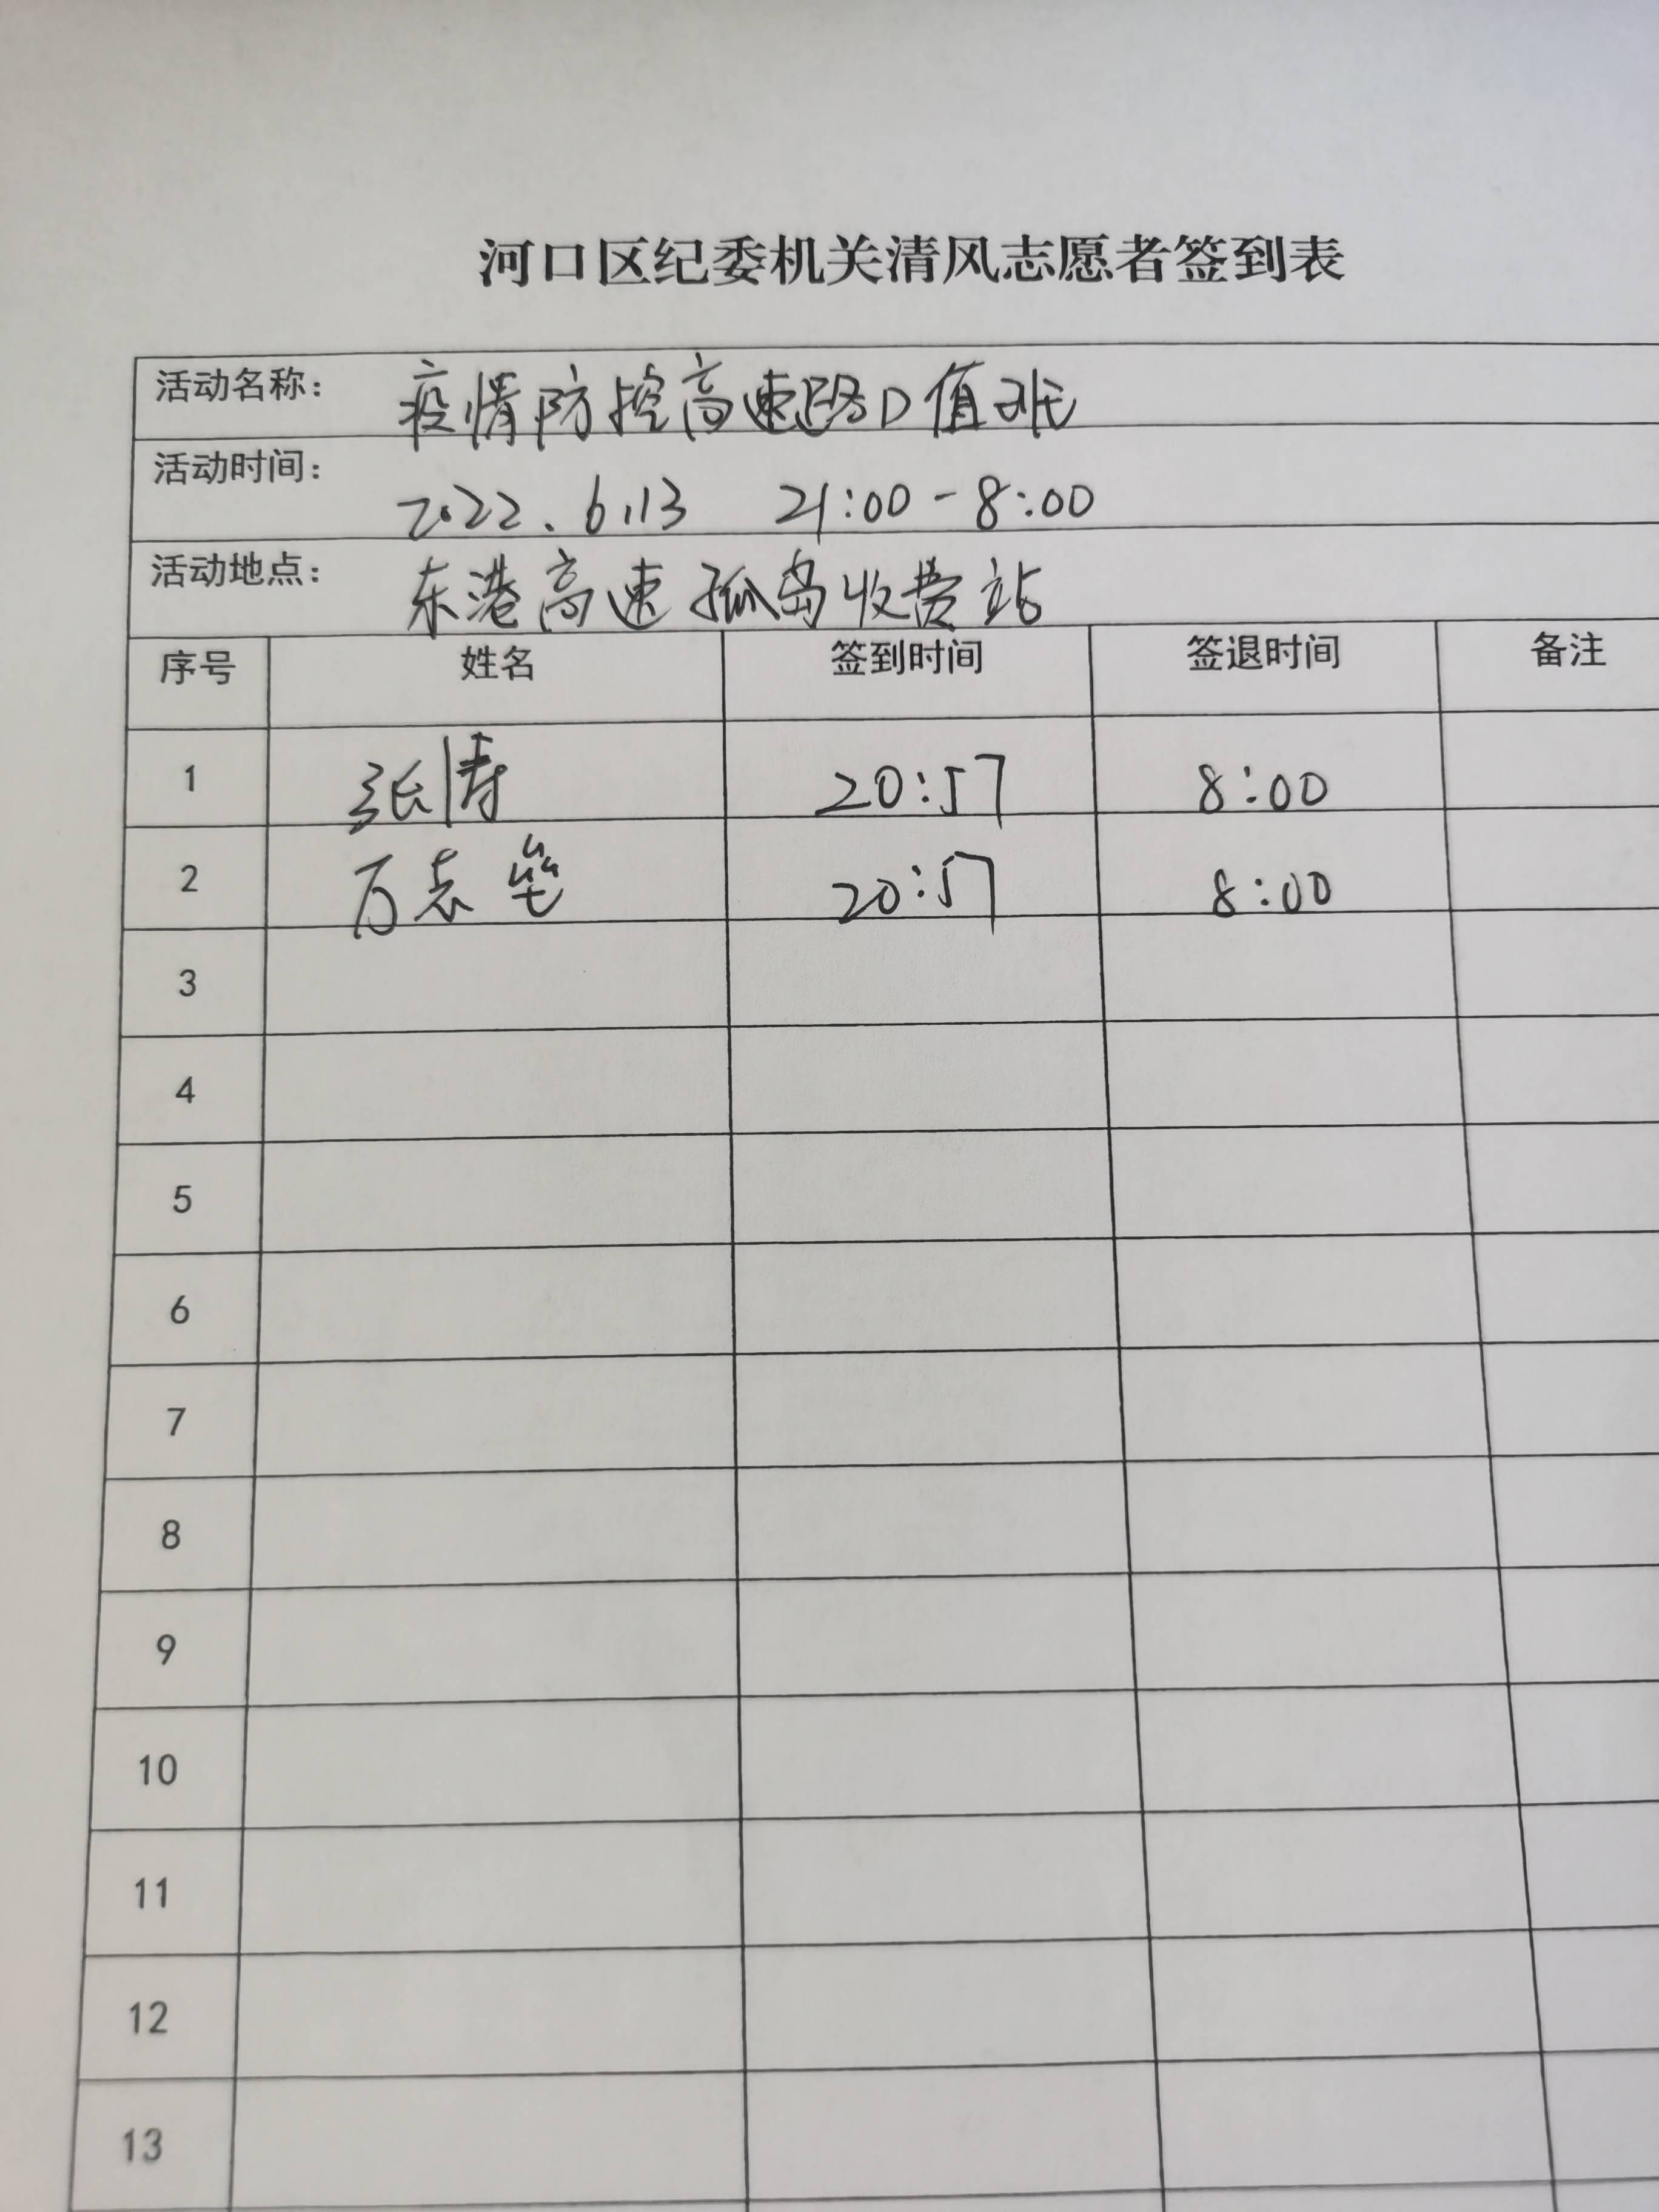 河口区纪委机关清风志愿者签到表
活动名称： 疫情防控高速路口值班
活动时间： 2022.6.13 21:00-8:00
活动地点： 东港高速孤岛收费站
序号 姓名 签到时间 签退时间 备注
1 张涛 20:57 8:00
2 万志 20:57 8:00
3
4
5
6
7
8
9
10
11
12
13